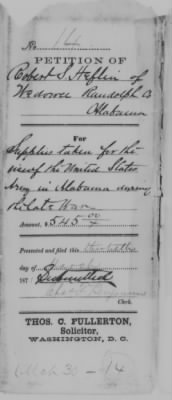 No. 14
PETITION OF
Robert S. Heflin of
Wedowee Randolph Co
Alabama
For
Supplies taken for the
use of the United States
Army in Alabama during
the late War
Amount, $545.00
Presented and filed this
day of
187 Submitted
Clerk.
THOS. C. FULLERTON,
Solicitor,
WASHINGTON, D.C.